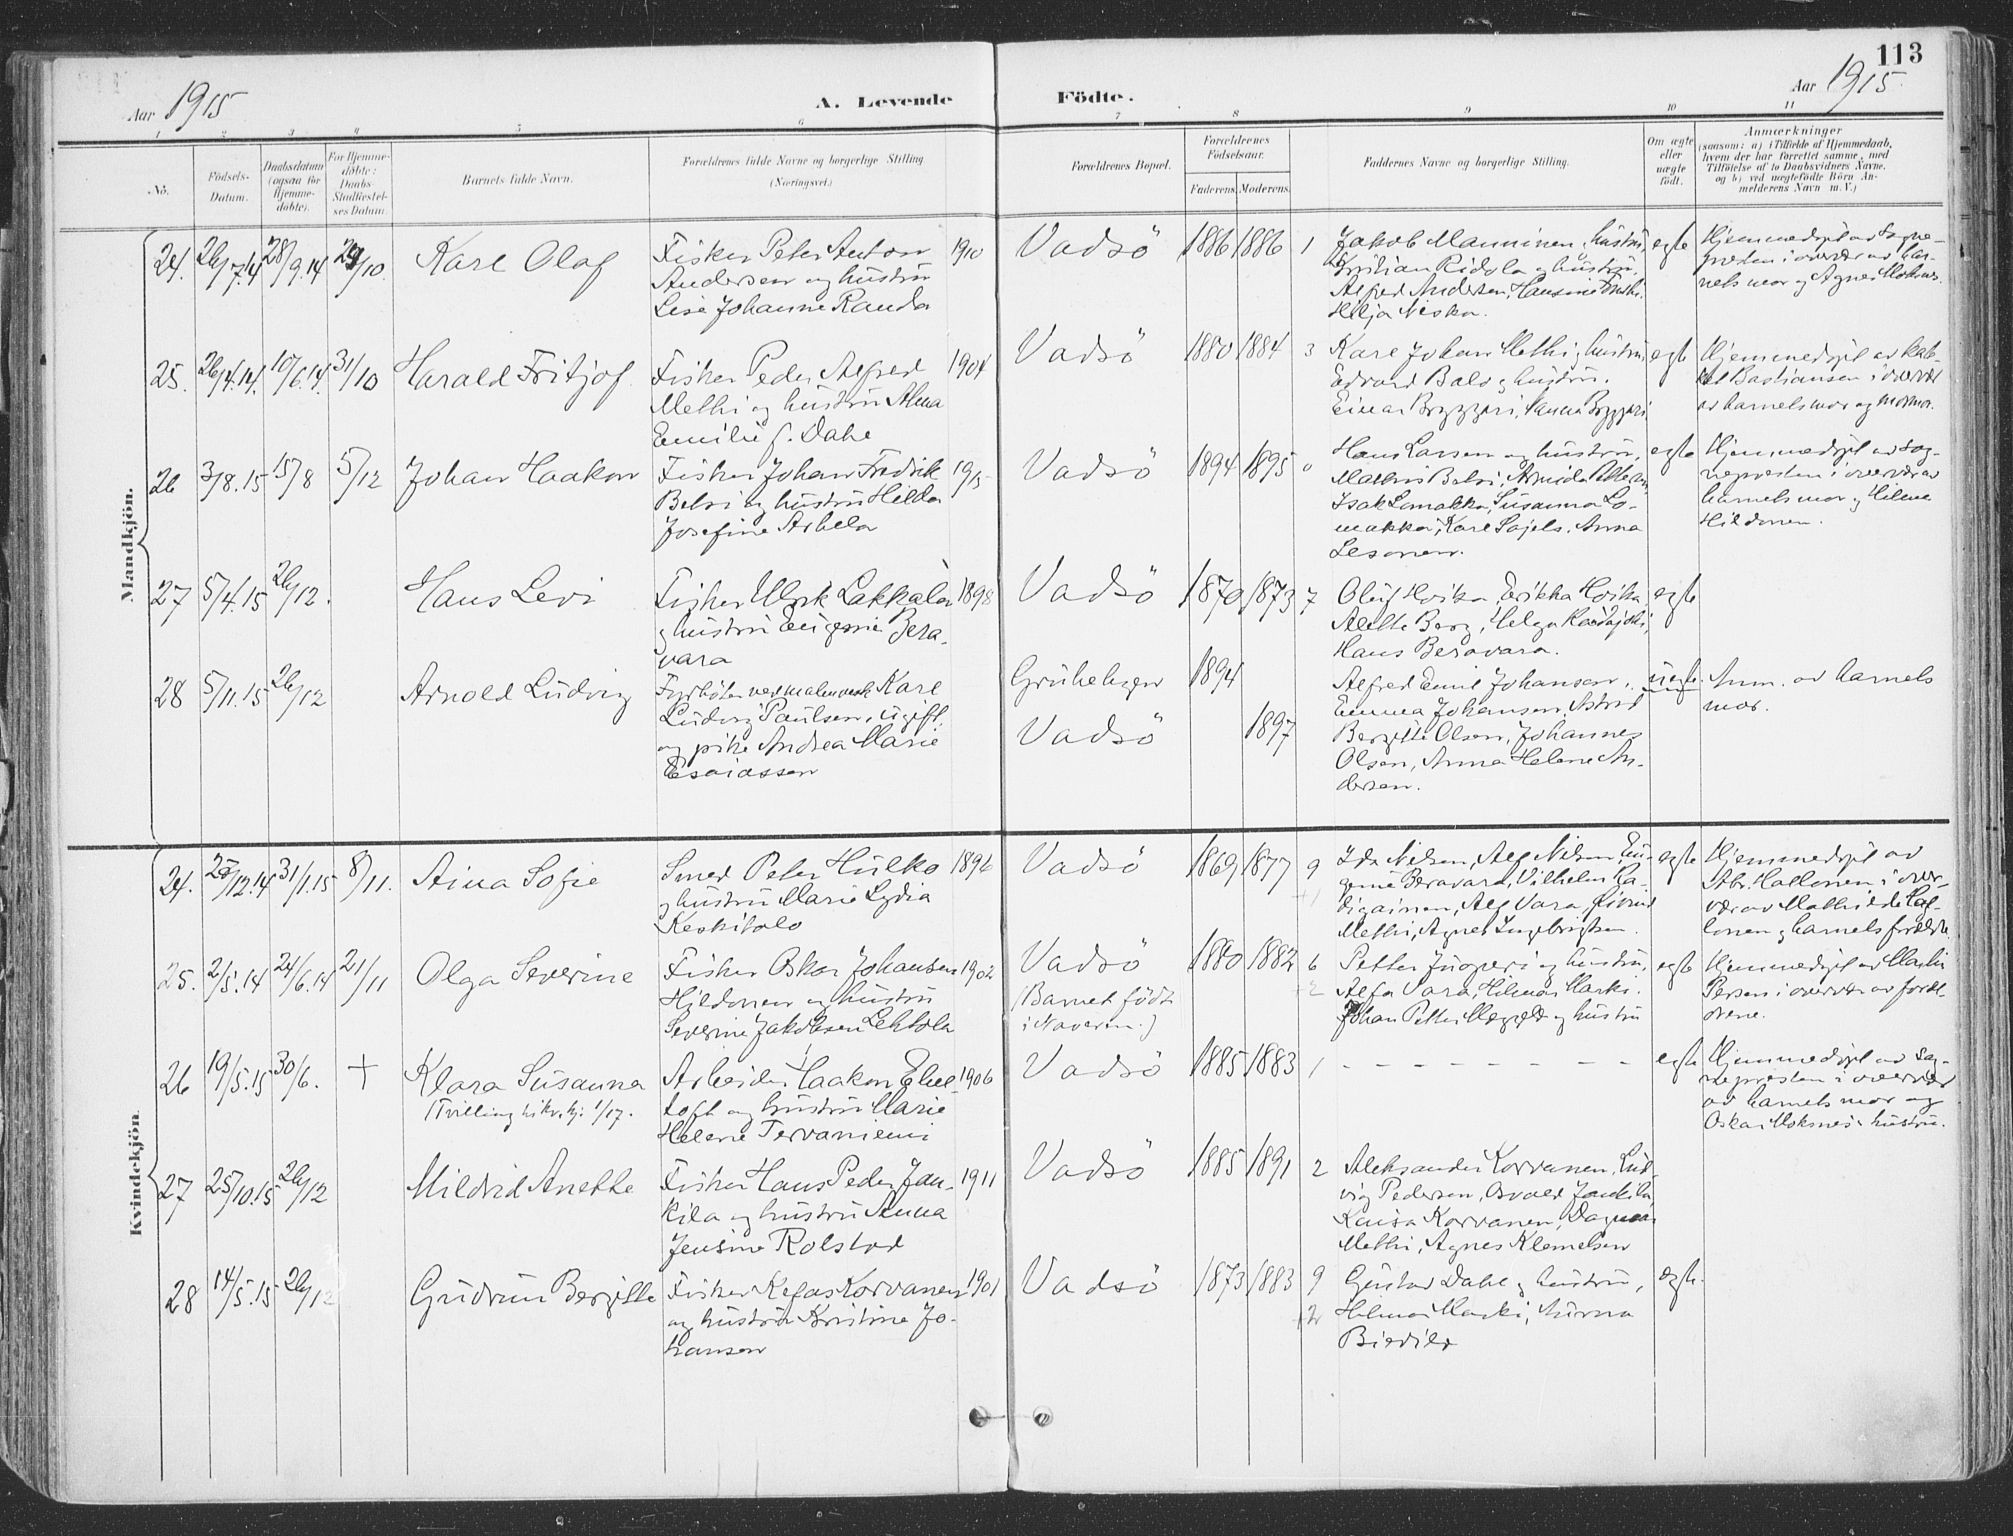 113
Aar 1915
A. Levende
Födte.
Aar 1915.
1 2 3 4 5 6 7 8 9 10 11
No.
Födsels-Datum.
Daabsdatum (ogsaa for Hjemme-döbte).
For Hjemme-döbte: Daabs-Stadfæstel-ses Datum.
Barnets fulde Navn.
Forældrenes fulde Navne og borgerlige Stilling (Næringsvei.)
Forældrenes Bopæl.
Forældrenes Födselsaar.
Faderens. Moderens.
Faddernes Navne og borgerlige Stilling.
Om ægte eller uægte födt.
Anmærkninger
(saasom: a) i Tilfælde af Hjemmedaab,
hvem der har forrettet samme, med
Tilföielse af to Daabsvidners Navne,
og b) ved uægtefödte Börn An-
melderens Navn m. V.)
Mandkjön.
24. 26/7.14 28/9.14 29/10. Karl Olaf
Fisker Peter Anton 1910
Andersen og hustru
Lise Johanne Randa
Vadsö 1886 1886 1
Jakob Manninen, hustru,
Kristian Ridola og hustru.
Alfred Andersen, Hansine
Hilja Niska.
egte
Hjemmedöpt av sogne-
presten i overvær av bar-
nets mor og Agnes Moknes.
25. 26/4.14. 10/6.14. 31/10 Harald Fritjof
Fisker Peder Alfred 1904
Methi og hustru Alma
Emilie f. Dahl
Vadsö 1880 1884 3
Karl Johan Methi og hustru
Edvard Balo og hustru.
Einar Bryggari, Sanna Bryggari
egte
Hjemmedöpt av kat-
Bastiansen i overvær
av barnets mor og mormor.
26 3/8.15 15/8 5/12 Johan Haakon
Fisker Johan Fredrik 1915
Belsi og hustru Hilda
Josefine Arbela
Vadsö 1894 1895 0
Hans Larsen og hustru,
Mathis Belsi, Armida
Isak Lomakka, Susanna Lo-
makka, Karl Sajets, Anna
Lesonen.
egte
Hjemmedöpt av sog-
nepresten i overvær av
barnets mor og Hilma
Hildonen.
27 5/4.15 26/12. Hans Levi
Fisker Ulrik Lakkala 1898
og hustru Eugenie Bera-
vara
Vadsö 1870 1873 7
Oluf Hoika, Erikka Hoika,
Alette Berg, Helga
Hans Beravara.
egte
28 5/11.15 26/12 Arnold Ludvig
Fyrböter ved malmverk Karl
Ludvig Paulsen, ugift,
og pike Andrea Marie
Esaiassen
1894
Vadsö 1897
Alfred Emil Johansen,
Emma Johansen, Astrid
Bergitte Olsen, Johannes
Olsen, Anna Helene An-
dersen.
uegte.
Anm. av barnets
mor.
Kvindekjön.
24. 25/12.14 31/1.15 8/11. Aina Sofie
Smed Peter Hulko 1896
og hustru Marie Lydia
Keskitalo
Vadsö 1869 1877 9
+1
Ida Nilsen, Alf Nilsen, Eu-
genie Beravara, Vilhelm Ka-
digainen, Alf Vara,
Methi, Agnes Ingebrigtsen.
egte
Hjemmedöpt av
Abr. Hallonen i over-
vær av Mathilde Hal-
lonen og barnets forældre.
25. 2/5.14 24/6.14 21/11 Olga Severine
Fisker Oskar Johansen 1902
Hildonen og hustru
Severine Jakobsen Lehtola
Vadsö 1880 1882 6
(Barnet födt +2
i Naverin.)
Petter Juoperi og hustru,
Alfa Vara, Hilmar Marki.
Johan Petter og hustru
egte
Hjemmedöpt av Martin
Persen i overvær av foræl-
drene.
26 19/5.15 30/6. + Klara Susanna
(Tvilling til kv.kj. 1/17.
Arbeider Haakon Ehe- 1906
toft og hustru Marie
Helene Tervaniemi
Vadsö 1885 1883 1
- - - - - - - -
egte
Hjemmedöpt av sog-
nepresten i overvær
av barnets mor og
Oskar Moknes's hustru.
27 25/10.15 26/12 Mildrid Anette
Fisker Hans Peder Jan- 1911
kila og hustru Anna
Jensine Rolstad
Vadsö 1885 1891 2
Aleksander Korvanen, Lud-
vig Pedersen, Osvald Jankila
Kaisa Korvanen, Dagmar
Methi, Agnes Klemetsen
28 14/5.15 26/12 Gudrun Bergitte
Fisker Kefas Korvanen 1901
og hustru Kristine Jo-
hansen
Vadsö 1873 1883 9
+2
Gustav Dahl og hustru,
Hilmar Marki,
egte.